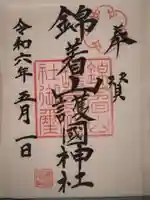 奉賛
錦着山護國神社
令和六年五月一日